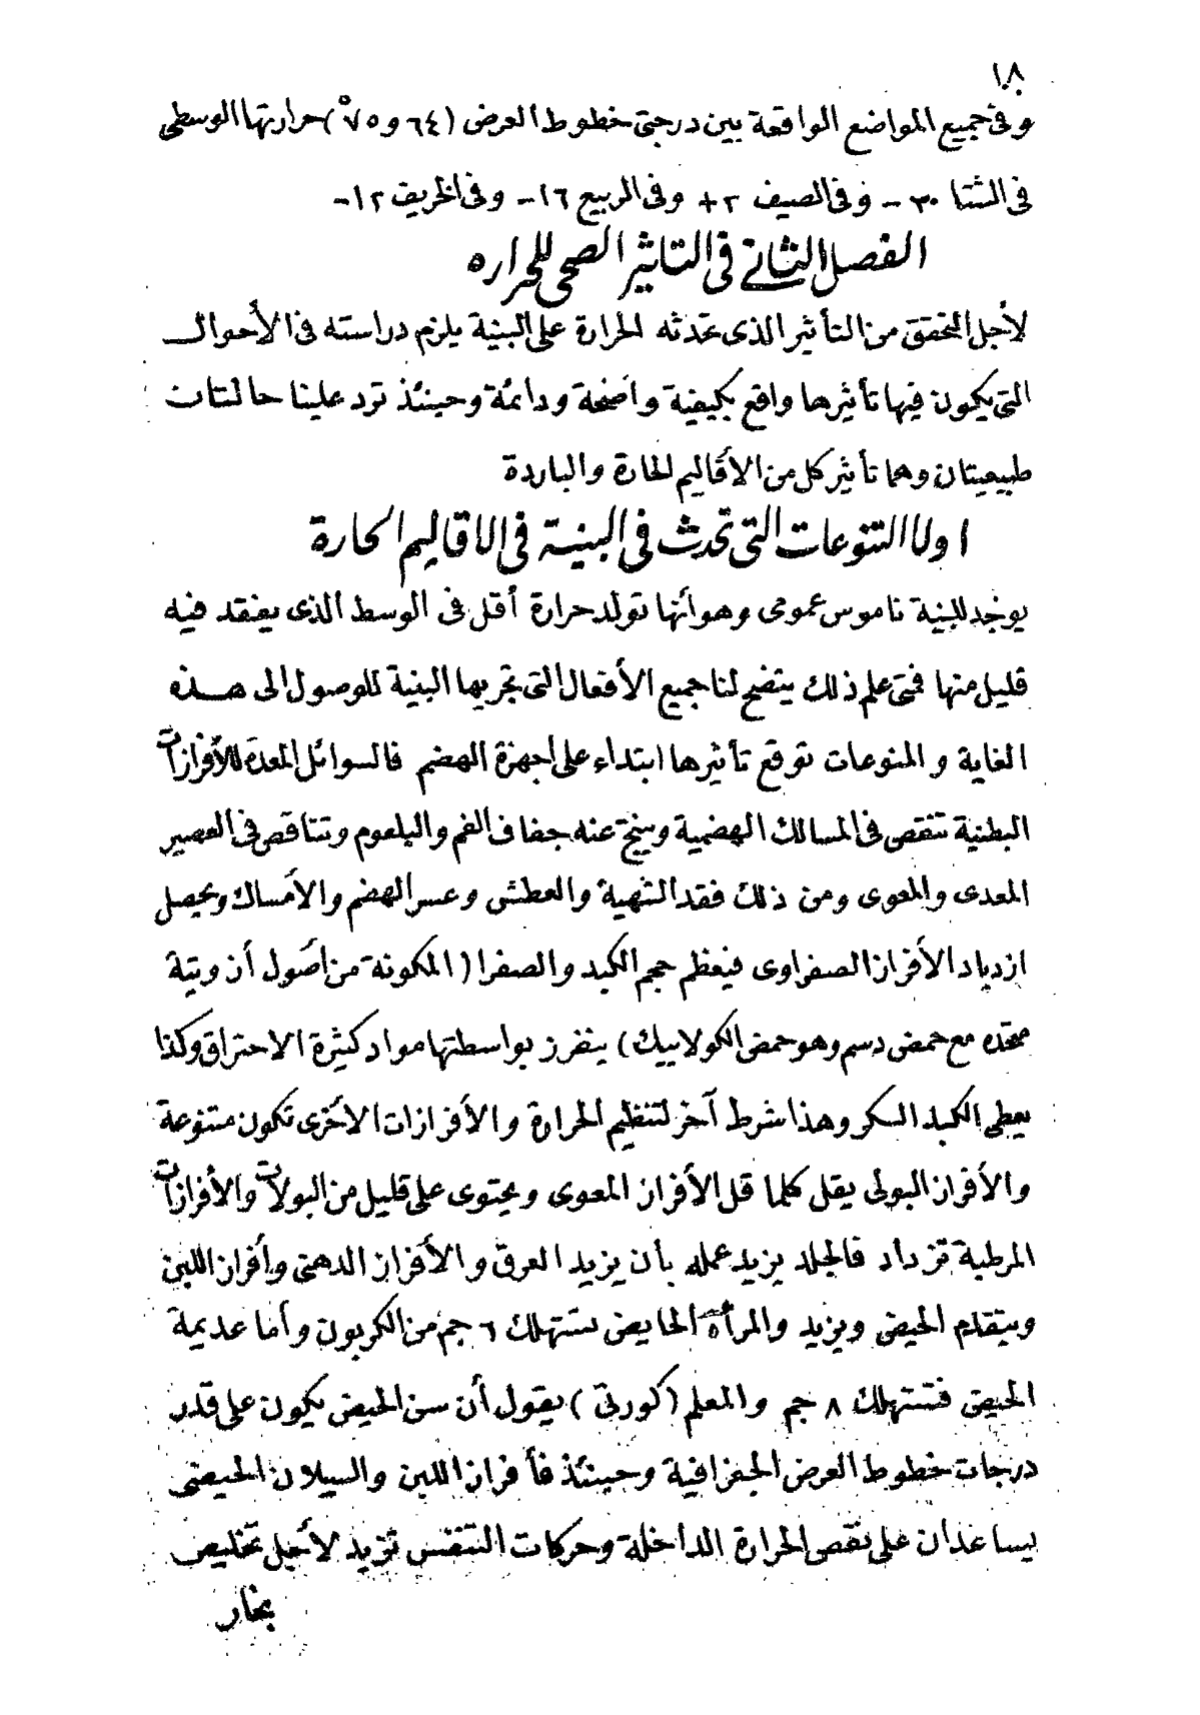 ١٨
وفى جميع المواضع الواقعة بين درجتى خطوط العرض (٦٤ و ٧٥°) حرارتها الوسطى
فى الشتا ٣٠ – وفى الصيف ٢ + وفى الربيع ١٦ – وفى الخريف ١٢ –
الفصل الثانى فى التاثير الصحى للحراره
لأجل التحقق من التأثير الذى تحدثه الحرارة على البنية يلزم دراسته فى الأحوال
التى يكون فيها تأثيرها واقع بكيفية واضحة ودائمة وحينئذ ترد علينا حالتان
طبيعيتان وهما تأثير كل من الأقاليم الحارة والباردة
اولا التنوعات التى تحدث فى البنية فى الاقاليم الحارة
يوجد للبنية ناموس عمومى وهو أنها تولد حرارة أقل فى الوسط الذى يفقد فيه
قليل منها فمتى علم ذلك يتضح لنا جميع الأفعال التى تجريها البنية للوصول الى هذه
الغاية والمنوعات توقع تأثيرها ابتداء على أجهزة الهضم فالسوائل المعدة للأفرازات
البطنية تنقص فى المسالك الهضمية وينتج عنه جفاف الفم والبلعوم وتتناقص فى العصير
المعدى والمعوى ومن ذلك فقد الشهية والعطش وعسر الهضم والأمساك ويحصل
ازدياد الأفراز الصفراوى فيعظم حجم الكبد والصفرا (المكونة من اصول أزوتية
متحده مع حمض دسم وهو حمض الكولاييك) ينفرز بواسطتها مواد كثيرة الاحتراق وكذا
يعطى الكبد السكر وهذا شرط آخر لتنظيم الحرارة والأفرازات الأخرى تكون متنوعة
والأفراز البولى يقل كلما قل الأفراز المعوى ويحتوى على قليل من البولات والأفرازات
المرطبة تزداد فالجلد يزيد عمله بأن يزيد العرق والأفراز الدهنى وأفراز اللبن
ويتقدم الحيض ويزيد والمرأة الحايض تستهلك ٦ جم من الكربون وأما عديمة
الحيض فتستهلك ٨ جم والمعلم (كورتى) يقول أن سن الحيض يكون على قدر
درجات خطوط العرض الجغرافية وحينئذ فأفراز اللبن والسيلان الحيضى
يساعدان على نقص الحرارة الداخلة وحركات التنفس تزيد لأجل تخليص
بخار